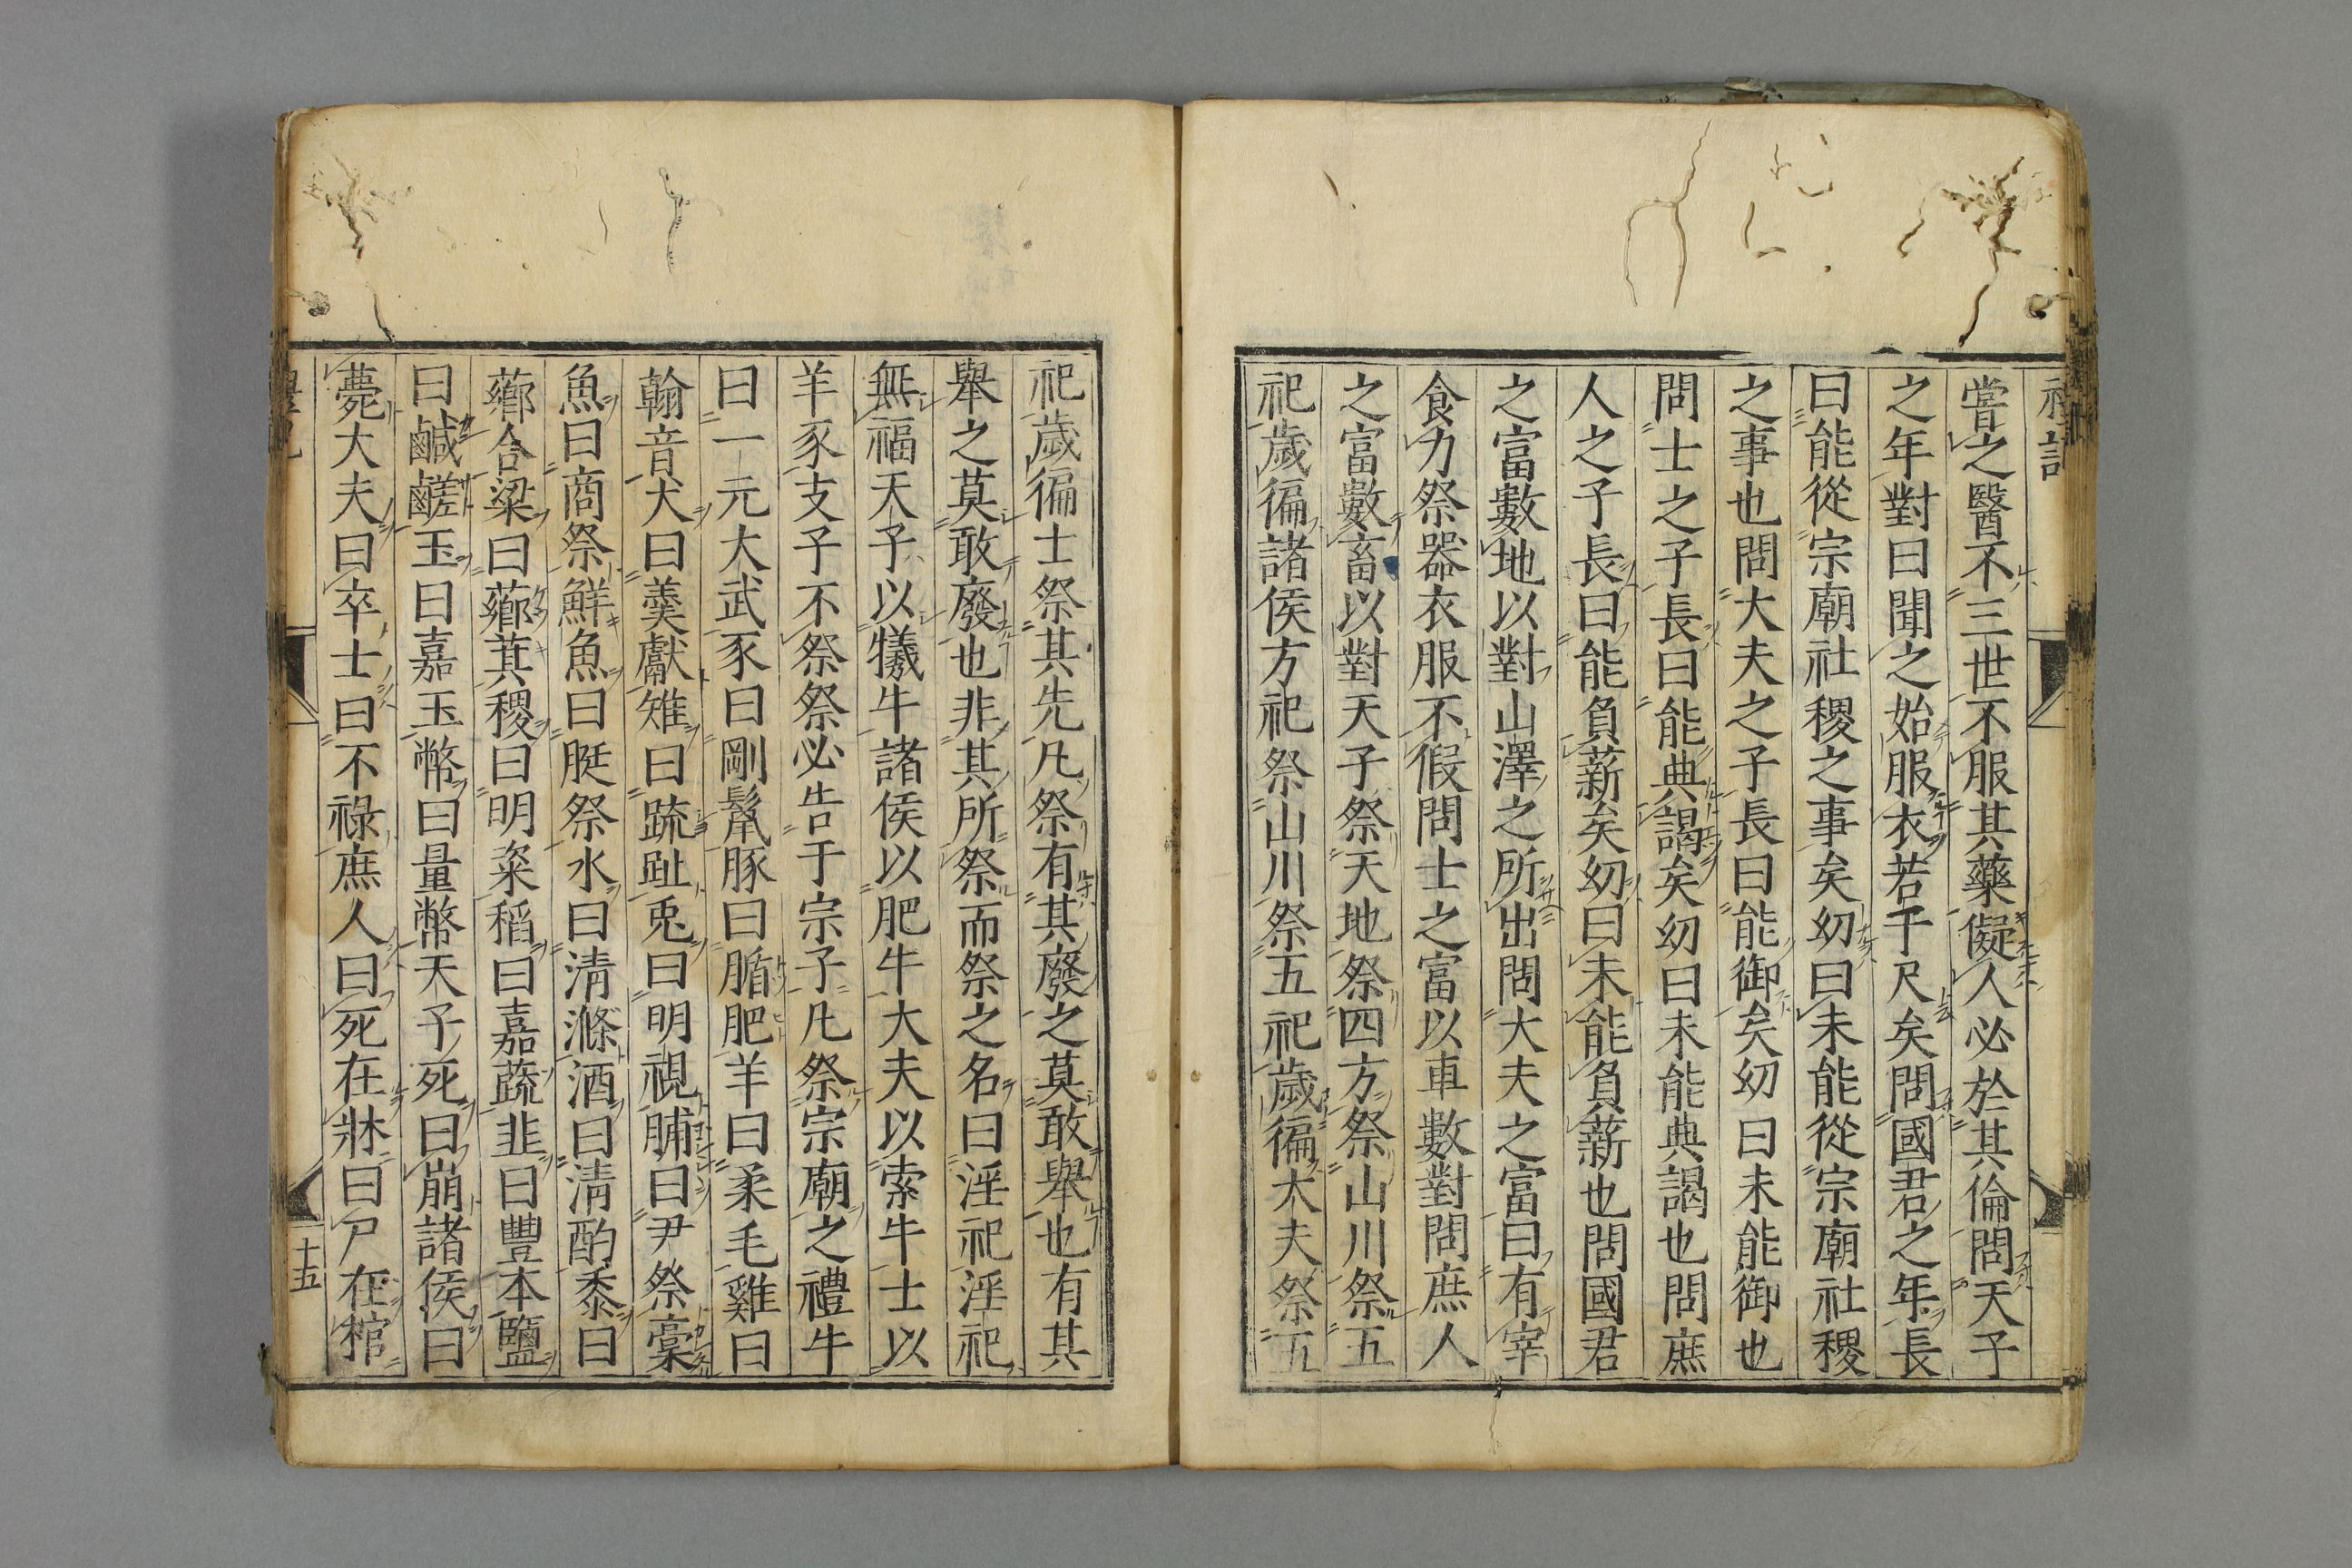 禮記
嘗之醫不三世不服其藥儗人必於其倫問天子
之年對曰聞之始服衣若干尺矣問國君之年長
曰能從宗廟社稷之事矣幼曰未能從宗廟社稷
之事也問大夫之子長曰能御矣幼曰未能御也
問士之子長曰能典謁矣幼曰未能典謁也問庶
人之子長曰能負薪矣幼曰未能負薪也問國君
之富數地以對山澤之所出問大夫之富曰有宰
食力祭器衣服不假問士之富以車數對問庶人
之富數畜以對天子祭天地祭四方祭山川祭五
祀歲徧諸侯方祀祭山川祭五祀歲徧大夫祭五
祀歲徧士祭其先凡祭有其廢之莫敢舉也有其
舉之莫敢廢也非其所祭而祭之名曰淫祀淫祀
無福天子以犧牛諸侯以肥牛大夫以索牛士以
羊豕支子不祭祭必告于宗子凡祭宗廟之禮牛
曰一元大武豕曰剛鬣豚曰腯肥羊曰柔毛雞曰
翰音犬曰羹獻雉曰疏趾兎曰明視脯曰尹祭槀
魚曰商祭鮮魚曰脡祭水曰清滌酒曰清酌黍曰
薌合粱曰薌萁稷曰明粢稻曰嘉蔬韭曰豐本鹽
曰鹹鹺玉曰嘉玉幣曰量幣天子死曰崩諸侯曰
薨大夫曰卒士曰不祿庶人曰死在牀曰尸在棺
十五